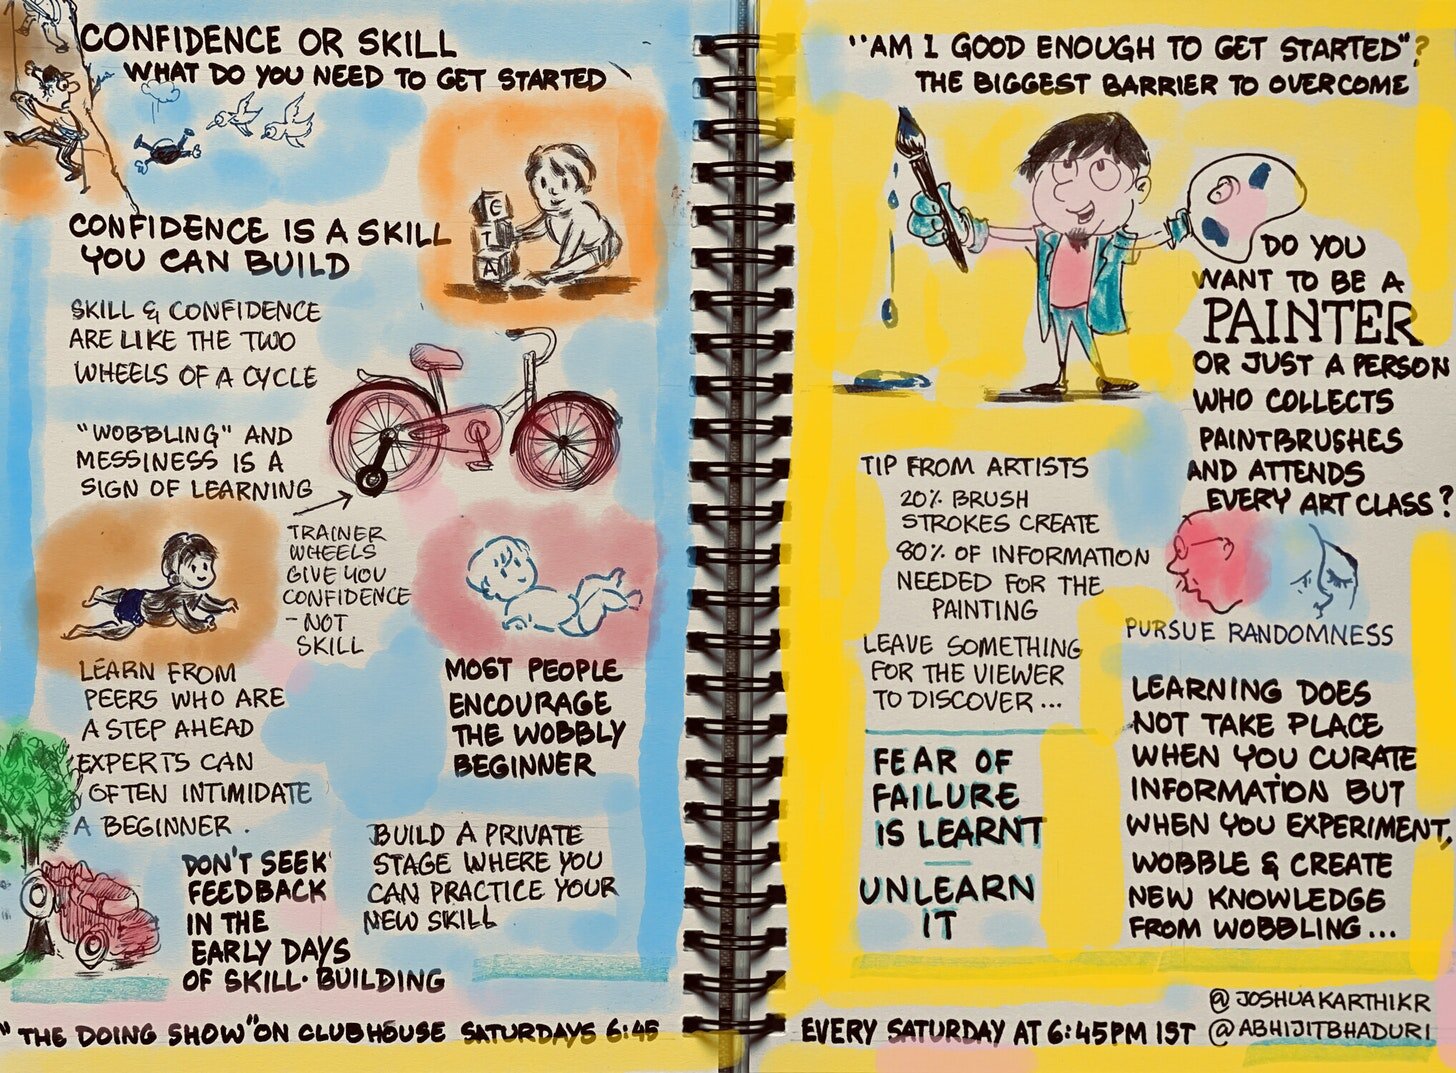 CONFIDENCE OR SKILL
WHAT DO YOU NEED TO GET STARTED
C
T
A
CONFIDENCE IS A SKILL
YOU CAN BUILD
SKILL & CONFIDENCE
ARE LIKE THE TWO
WHEELS OF A CYCLE
"WOBBLING" AND
MESSINESS IS A
SIGN OF LEARNING
TRAINER
WHEELS
GIVE YOU
CONFIDENCE
- NOT
SKILL
LEARN FROM
PEERS WHO ARE
A STEP AHEAD
EXPERTS CAN
OFTEN INTIMIDATE
A BEGINNER.
MOST PEOPLE
ENCOURAGE
THE WOBBLY
BEGINNER
DON'T SEEK
FEEDBACK
IN THE
EARLY DAYS
OF SKILL-BUILDING
BUILD A PRIVATE
STAGE WHERE YOU
CAN PRACTICE YOUR
NEW SKILL
"THE DOING SHOW" ON CLUBHOUSE SATURDAYS 6:45
"AM I GOOD ENOUGH TO GET STARTED"?
THE BIGGEST BARRIER TO OVERCOME
DO YOU
WANT TO BE A
PAINTER
OR JUST A PERSON
WHO COLLECTS
PAINTBRUSHES
AND ATTENDS
EVERY ART CLASS?
TIP FROM ARTISTS
20% BRUSH
STROKES CREATE
80% OF INFORMATION
NEEDED FOR THE
PAINTING
LEAVE SOMETHING
FOR THE VIEWER
TO DISCOVER...
PURSUE RANDOMNESS
FEAR OF
FAILURE
IS LEARNT
UNLEARN
IT
LEARNING DOES
NOT TAKE PLACE
WHEN YOU CURATE
INFORMATION BUT
WHEN YOU EXPERIMENT,
WOBBLE & CREATE
NEW KNOWLEDGE
FROM WOBBLING...
@JOSHUAKARTHIKR
EVERY SATURDAY AT 6:45PM IST @ABHIJITBHADURI